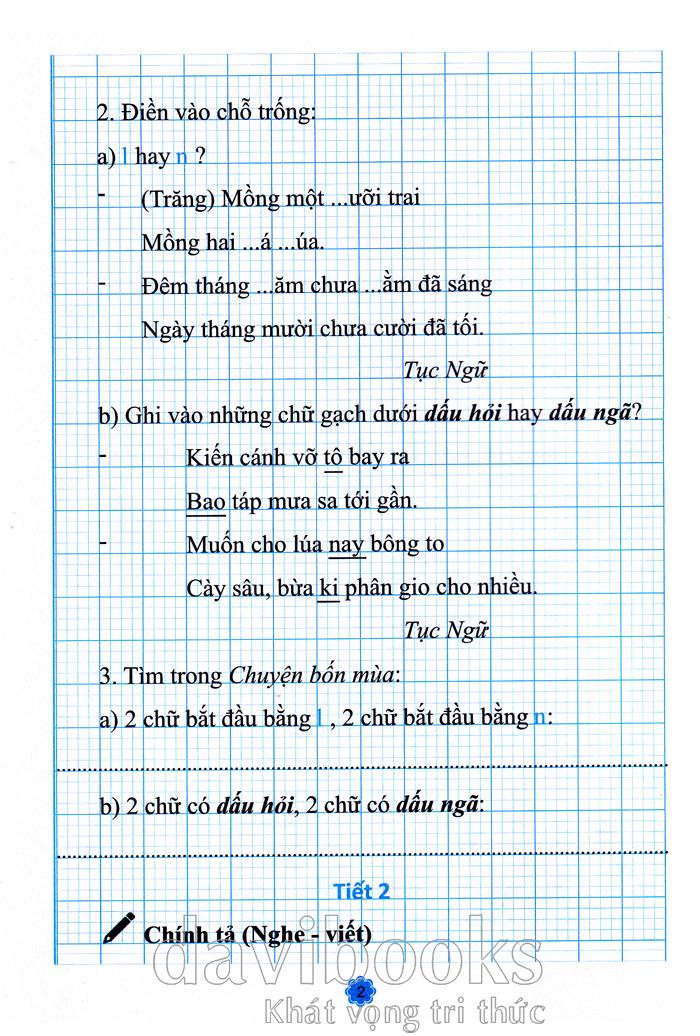 2. Điền vào chỗ trống:
a) l hay n ?
- (Trăng) Mồng một ...ưỡi trai
Mồng hai ...á ...úa.
- Đêm tháng ...ăm chưa ...ằm đã sáng
Ngày tháng mười chưa cười đã tối.
Tục Ngữ
b) Ghi vào những chữ gạch dưới dấu hỏi hay dấu ngã?
- Kiến cánh vỡ tô bay ra
Bao táp mưa sa tới gần.
- Muốn cho lúa nay bông to
Cày sâu, bừa ki phân gio cho nhiều.
Tục Ngữ
3. Tìm trong Chuyện bốn mùa:
a) 2 chữ bắt đầu bằng l , 2 chữ bắt đầu bằng n:
b) 2 chữ có dấu hỏi, 2 chữ có dấu ngã:
Tiết 2
Chính tả (Nghe - viết)
davibooks
2
Khát vọng tri thức